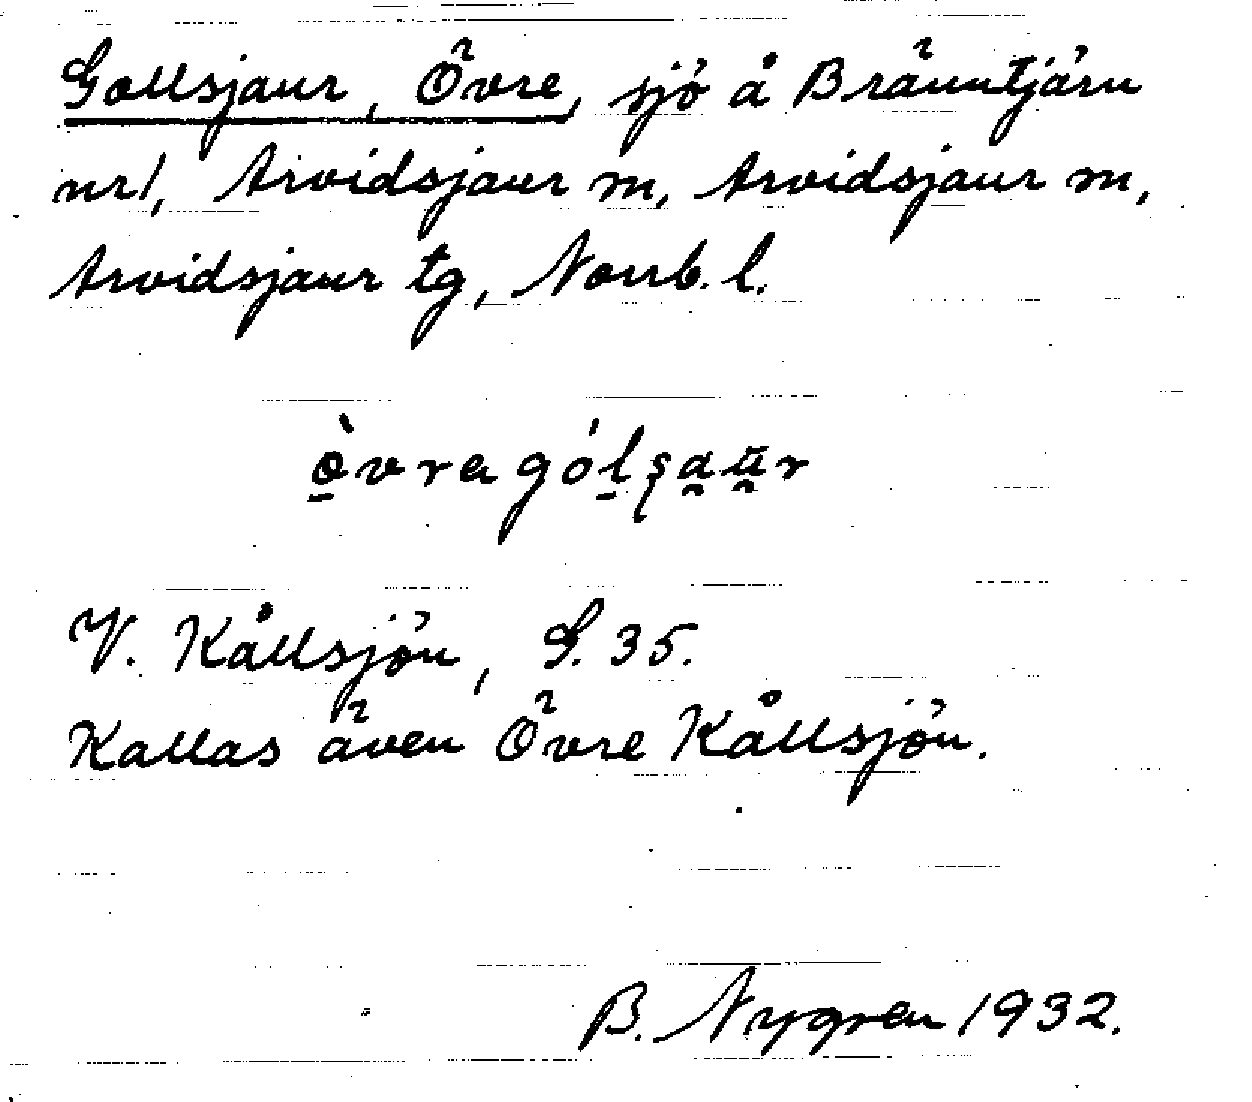 Gollsjaur, Övre, sjö å Bränntjärn
nr1, Arvidsjaur m, Arvidsjaur m,
Arvidsjaur tg, Norrb. l.
ò̱vra góḻʂa̯ŭ̯r
V. Kållsjön, S. 35.
Kallas även Övre Kållsjön.
B. Nygren 1932.